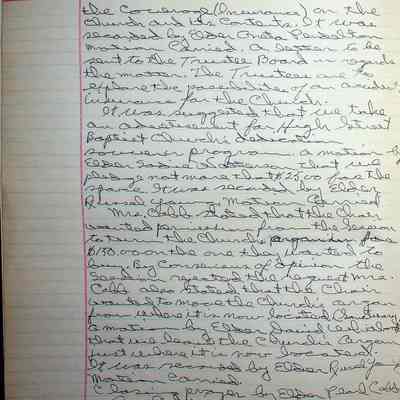 the Coverage (Insurance) on the
Church and its Contents. It was
seconded by Elder Greta Pendelton
motion Carried. A letter to be
sent to the Trustee Board in regards
the matter. The Trustees are to
explore the possibilities of an
insurance for the Church.
It was suggested that we take
an advertisement for High Street
Baptist Church's dedication
souvenir program. a motion by
Elder Sadie that we
pledge not more than $25.00 for the
space. It was seconded by Elder
Russel Young. Motion Carried
Mrs. Cobb stated that the Choir
wanted permission from the Session
to turn the Church's organ in for
$150.00 on the one they wanted to
buy. By Consensus of opinion the
Session rejected the request. Mrs.
Cobb also stated that the Choir
wanted to move the Church's organ
from where it is now located
a motion by Elder David
that we leave the Church's Organ
just where it is now located.
It was seconded by Elder
Motion Carried
Closing prayer by Elder Pearl Cobb